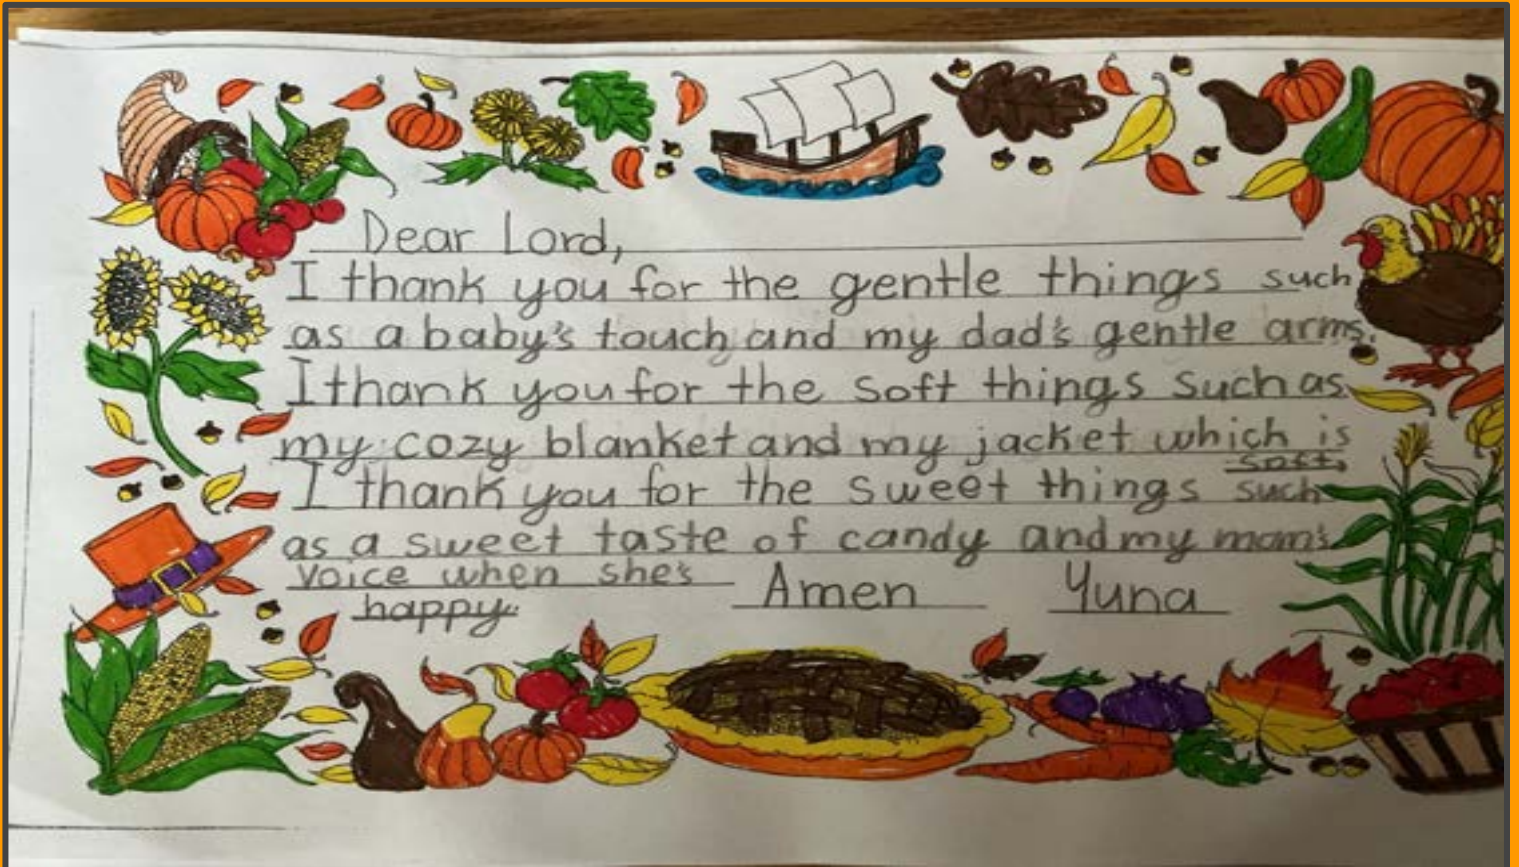 Dear Lord,
I thank you for the gentle things such
as a baby's touch and my dad's gentle arms.
I thank you for the soft things such as
my cozy blanket and my jacket which is
soft.
I thank you for the sweet things such
as a sweet taste of candy and my mom's
voice when she's
happy.
Amen Yuna